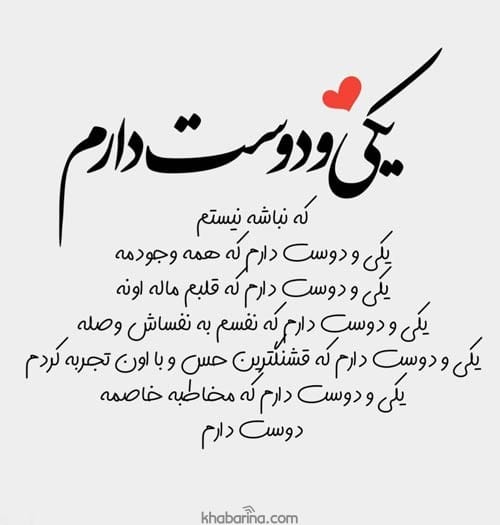 یکی و دوست دارم
که نباشه نیستم
یکی و دوست دارم که همه وجودمه
یکی و دوست دارم که قلبم ماله اونه
یکی و دوست دارم که نفسم به نفساش وصله
یکی و دوست دارم که قشنگترین حس و با اون تجربه کردم
یکی و دوست دارم که مخاطبه خاصمه
دوست دارم
khabarina.com